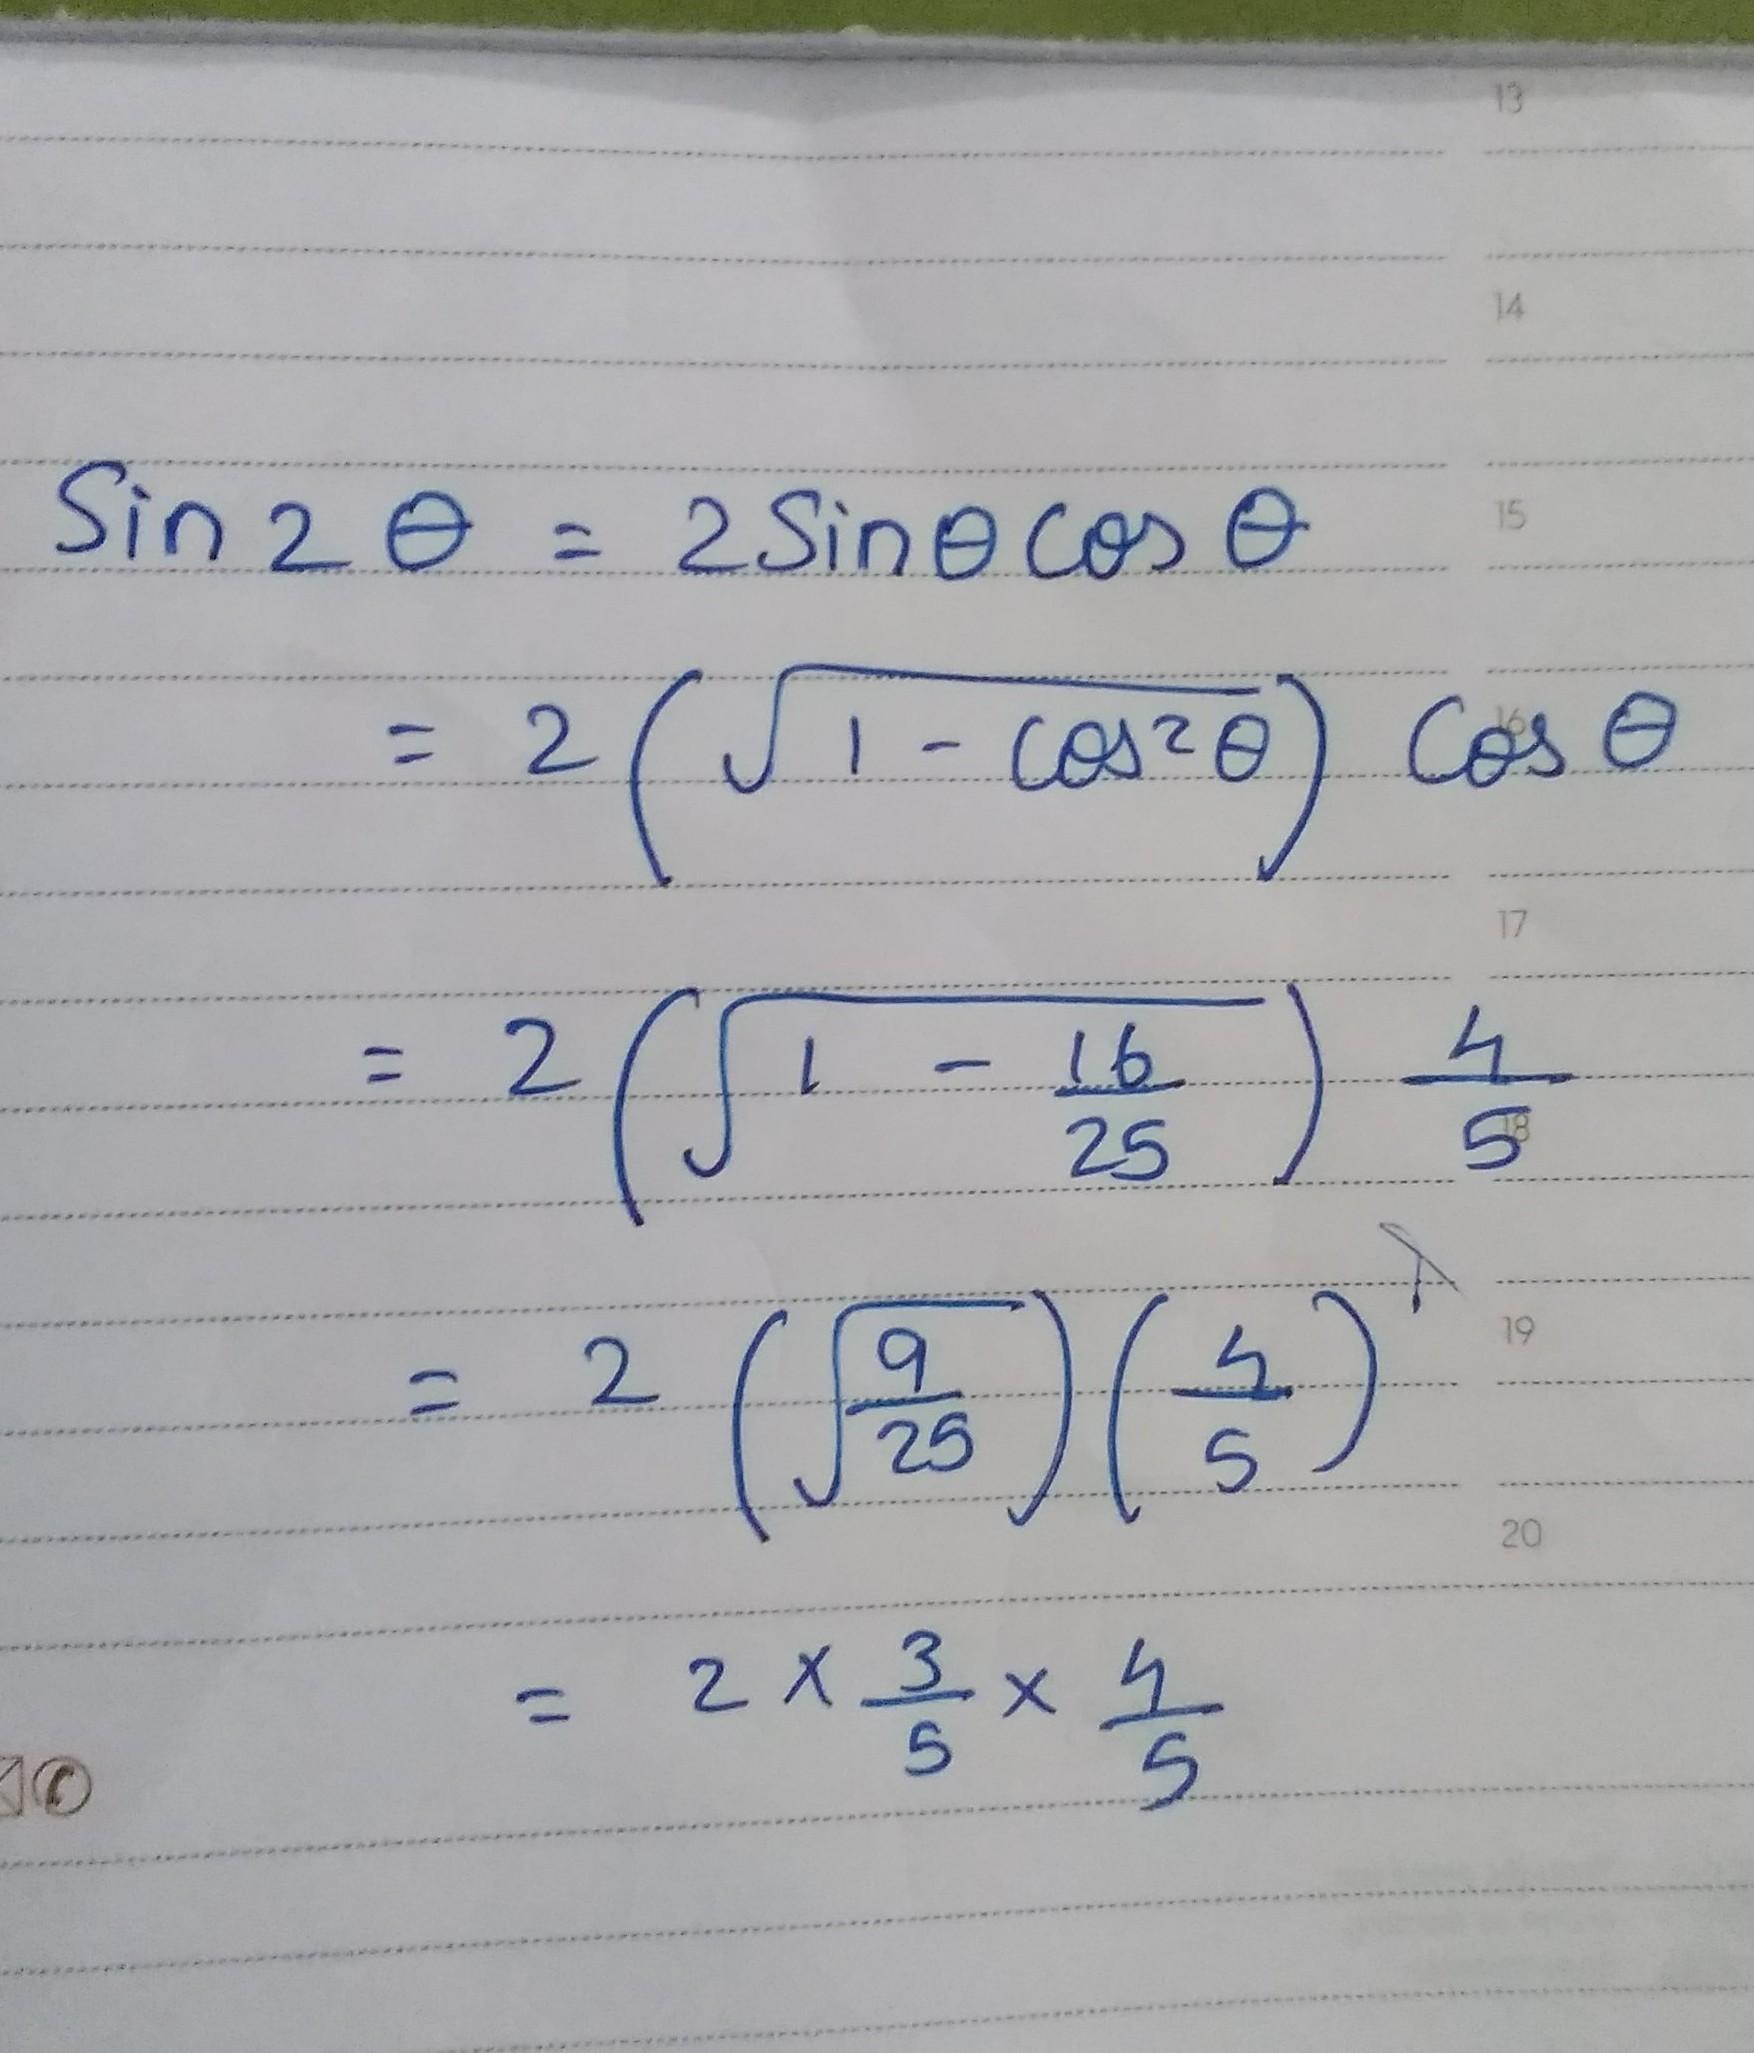 13
14
Sin 2 θ = 2 Sin θ Cos θ
15
= 2 (√(1 - Cos²θ)) Cos θ
16
17
= 2 (√(1 - 16/25)) 4/5
18
= 2 (√(9/25)) (4/5)
19
20
= 2 × 3/5 × 4/5